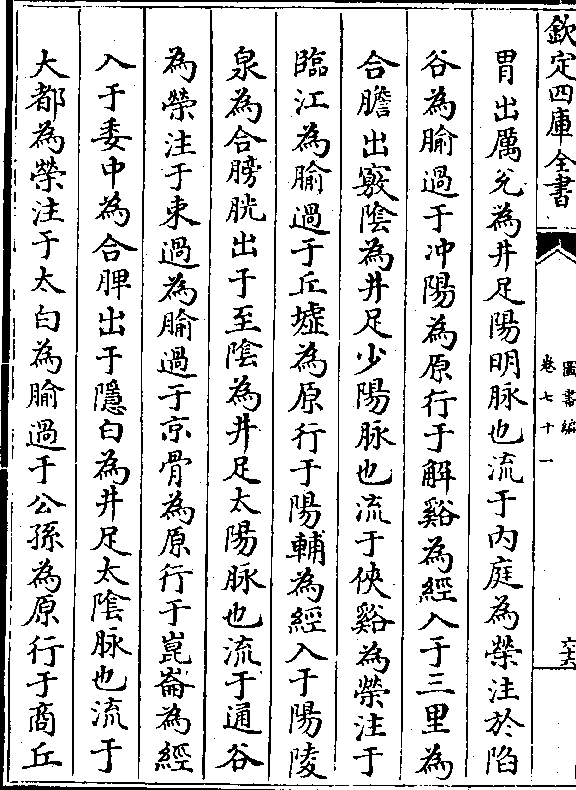 欽定四庫全書
圖書編
卷七十一
六十六
胃出厲兊為井足陽明脉也流于内庭為滎注於陷
谷為腧過于冲陽為原行于解谿為經入于三里為
合膽出竅隂為井足少陽脉也流于俠谿為滎注于
臨江為腧過于丘墟為原行于陽輔為經入于陽陵
泉為合膀胱出于至隂為井足太陽脉也流于通谷
為滎注于束過為腧過于京骨為原行于崑崙為經
入于委中為合脾出于隱白為井足太隂脉也流于
大都為滎注于太白為腧過于公孫為原行于商丘